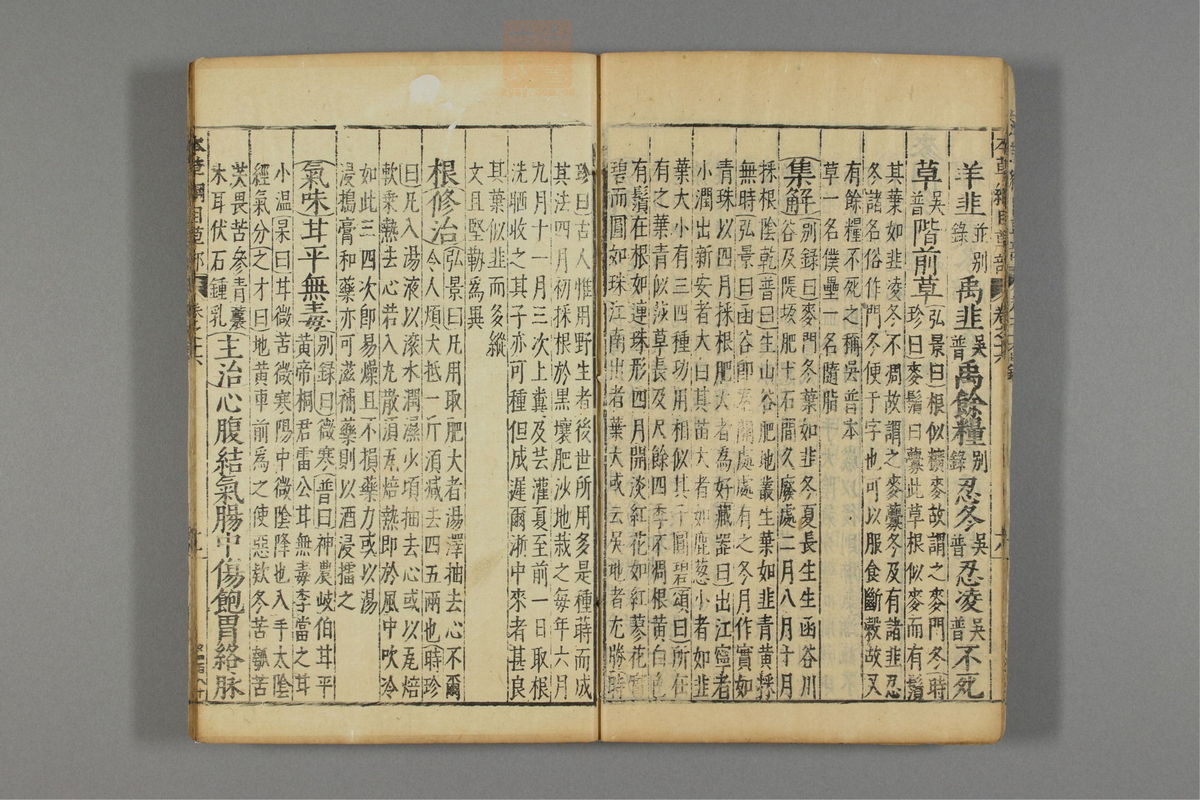 羊韭並別錄禹韭吳普禹餘糧別錄忍冬吳普忍凌吳普不死
草吳普階前草弘景曰根似穬麥故謂之麥門冬時珍曰麥鬚曰虋此草根似麥而有鬚
其葉如韭凌冬不凋故謂之麥虋冬及有諸韭忍
冬諸名俗作門冬便于字也可以服食斷穀故又
有餘糧不死之稱吳普本
草一名僕壘一名隨脂
集解別錄曰麥門冬葉如韭冬夏長生生函谷川
谷及隄坂肥土石間久廢處二月八月十月
採根陰乾普曰生山谷肥地叢生葉如韭青黃採
無時弘景曰函谷即秦關處處有之冬月作實如
青珠以四月採根肥大者為好藏器曰出江寧者
小潤出新安者大白其苗大者如鹿葱小者如韭
葉大小有三四種功用相似其子圓碧頌曰所在
有之葉青似莎草長及尺餘四季不凋根黃白色
有鬚在根如連珠形四月開淡紅花如紅蓼花實
碧而圓如珠江南出者葉大或云吳地者尤勝時
珍曰古人惟用野生者後世所用多是種蒔而成
其法四月初採根於黑壤肥沙地栽之每年六月
九月十一月三次上糞及芸灌夏至前一日取根
洗晒收之其子亦可種但成遲爾浙中來者甚良
其葉似韭而多縱
文且堅韌為異
根修治弘景曰凡用取肥大者湯澤抽去心不爾
令人煩大抵一斤須減去四五兩也時珍
曰凡入湯液以滾水潤濕少頃抽去心或以瓦焙
軟乘熱去心若入丸散須瓦焙熱即於風中吹冷
如此三四次即易燥且不損藥力或以湯
浸搗膏和藥亦可滋補藥則以酒浸擂之
氣味甘平無毒別錄曰微寒普曰神農岐伯甘平
黃帝桐君雷公甘無毒李當之甘
小溫杲曰甘微苦微寒陽中微陰降也入手太陰
經氣分之才曰地黃車前為之使惡欵冬苦瓠苦
芙畏苦參青蘘
木耳伏石鍾乳主治心腹結氣腸中傷飽胃絡脉